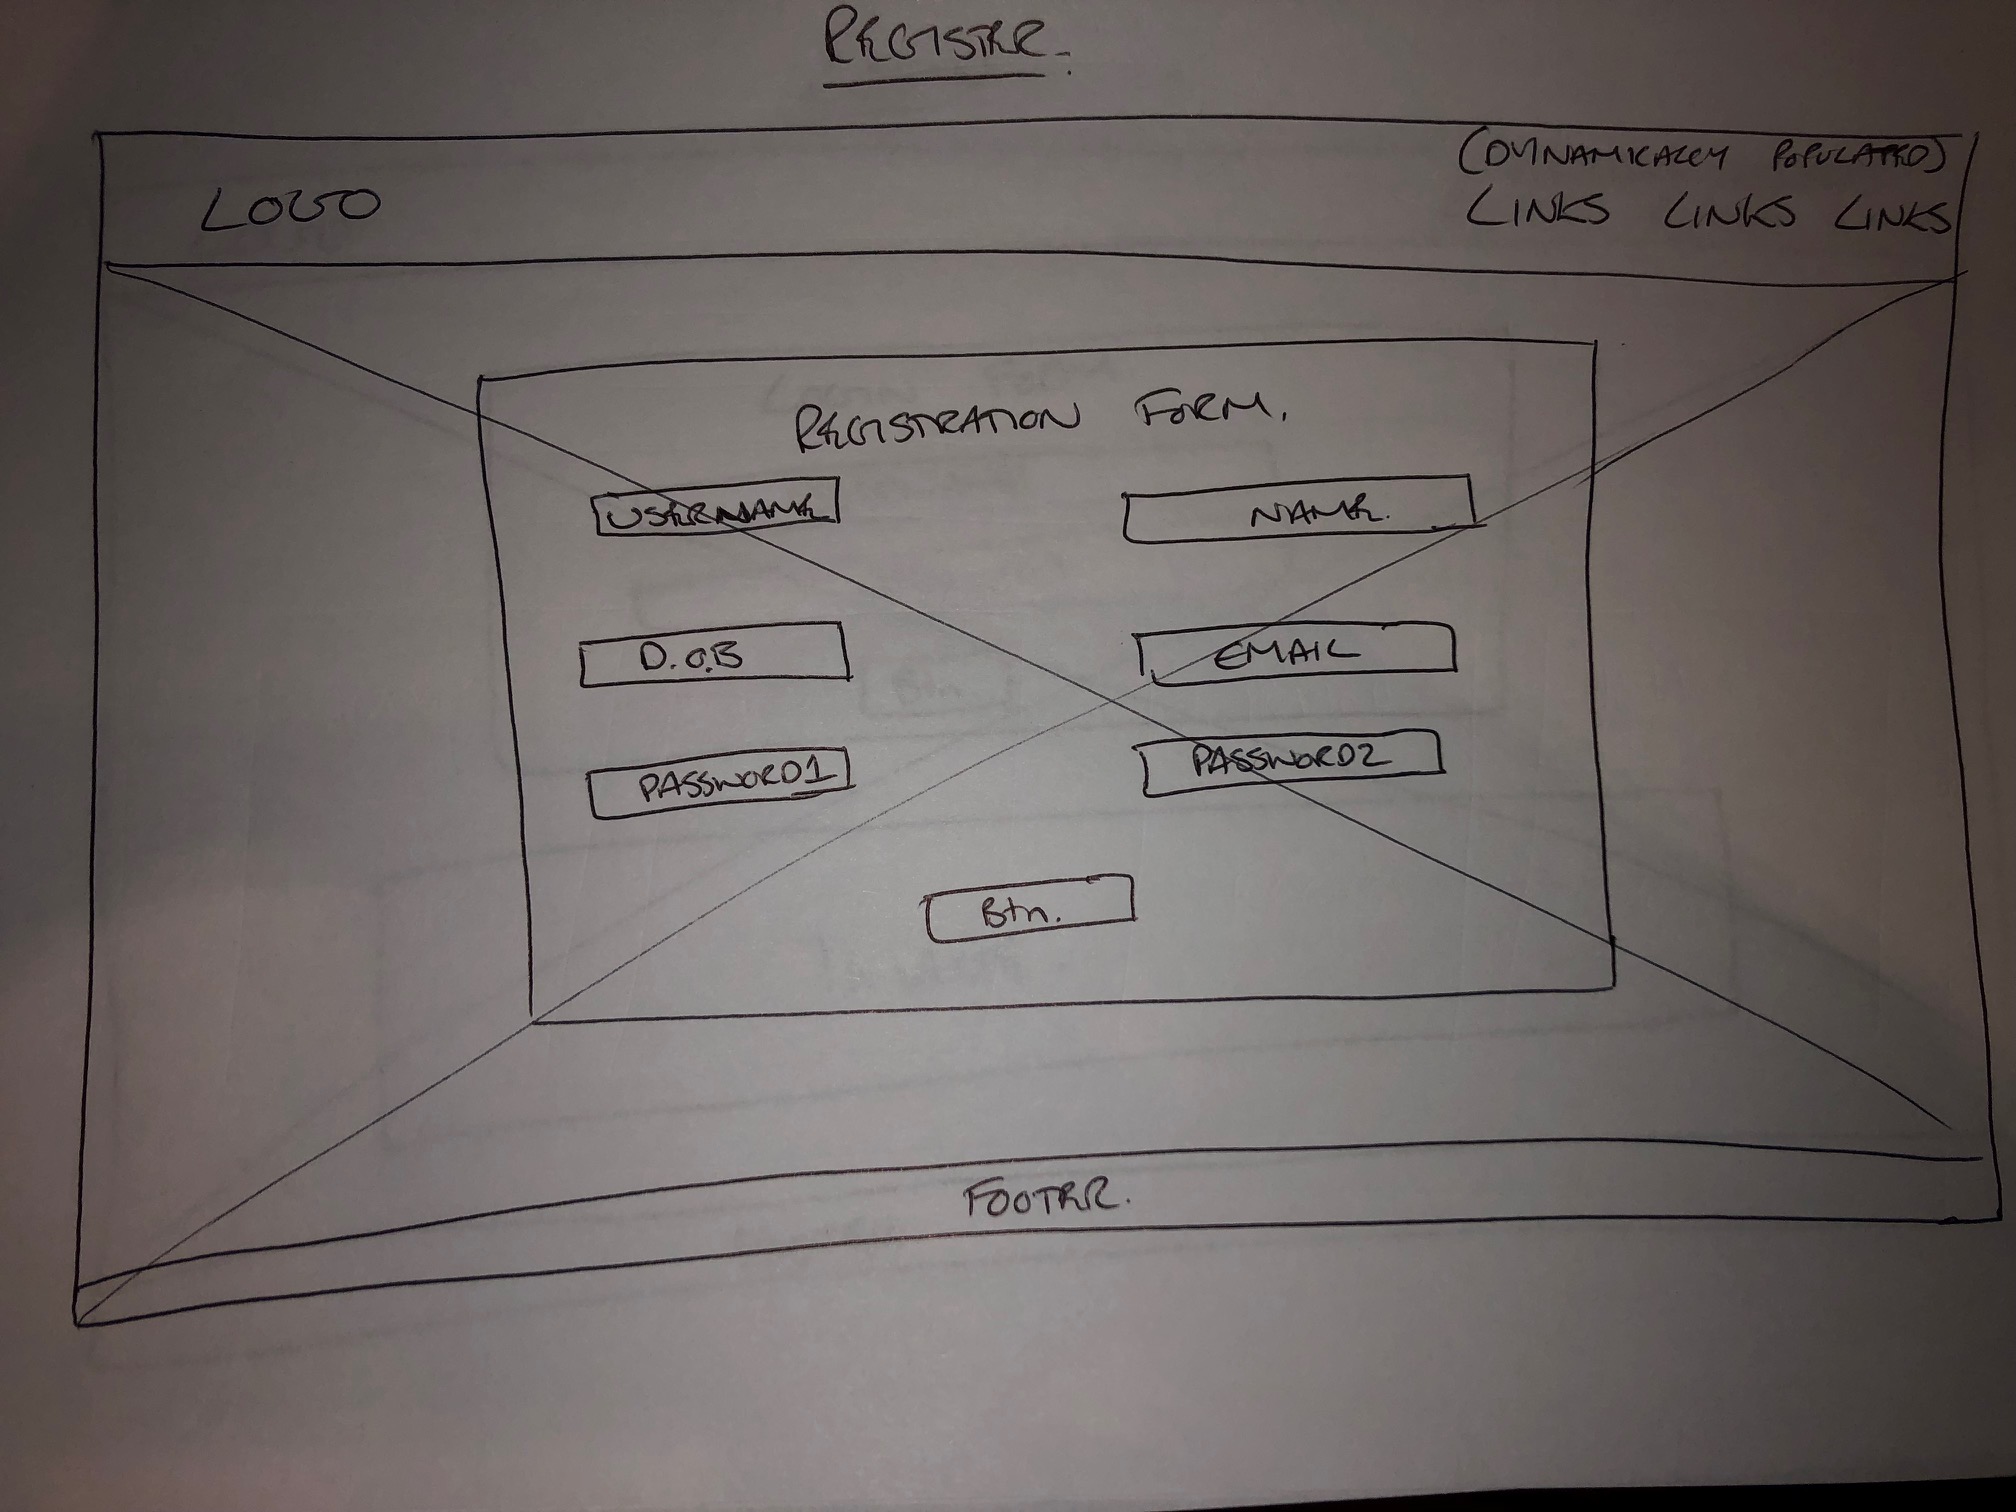 REGISTER.
LOGO
(DYNAMICALLY POPULATED)
LINKS LINKS LINKS
REGISTRATION FORM.
USERNAME
NAME.
D.O.B
EMAIL
PASSWORD1
PASSWORD2
Btn.
FOOTER.